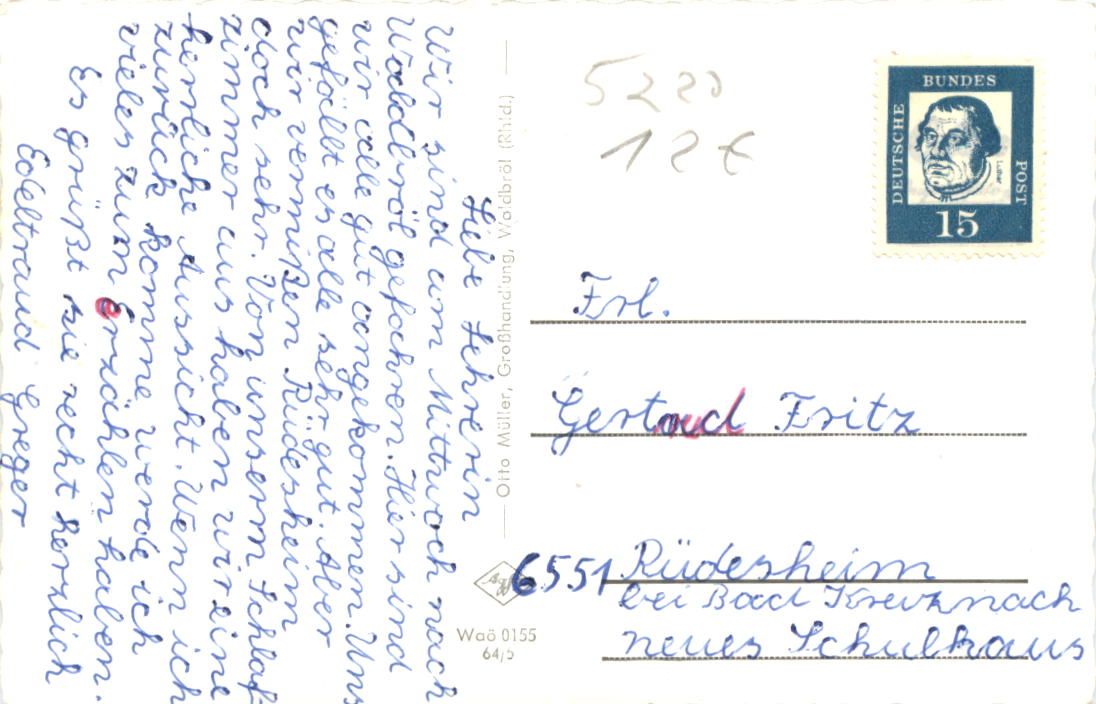 Liebe Lehrerin
Wir sind am Mittwoch nach
Waldbröl gefahren. Hier sind
wir alle gut angekommen. Uns
gefällt es alle sehr gut. Aber
wir vermißen Rüdesheim
doch sehr. Von unserm Schlaf-
zimmer aus haben wir eine
herrliche Aussicht. Wenn ich
zurück komme werde ich
vieles zum Erzählen haben.
Es grüßt sie recht herzlich
Edeltraud Greger
Otto Müller, Großhandlung, Waldbröl (Rhld.)
Waö 0155
64/5
5220
12 €
BUNDES
DEUTSCHE
POST
Luther
15
Frl.
Gertrud Fritz
6551 Rüdesheim
bei Bad Kreuznach
neues Schulhaus